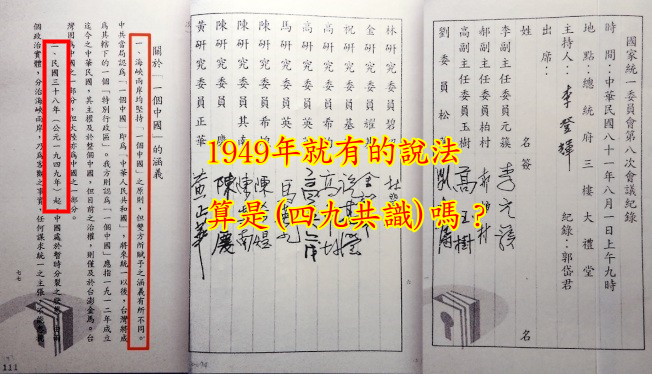 國家統一委員會第八次會議紀錄
時 間：中華民國八十一年八月一日上午九時
地 點：總統府三樓大禮堂
主持人：李登輝 紀錄：郭岱君
出 席：
姓名 簽名
李副主任委員元簇 李元簇
郝副主任委員柏村 郝柏村
高副主任委員玉樹 高玉樹
劉委員松
林研究委員
金研究委員耀
祝研究委員基
高研究委員
高研究委員
馬研究委員英
陳研究委員希
陳研究委員其南
陳研究委員 慶
黃研究委員正華 黃正華
關於「一個中國」的涵義
一、海峽兩岸均堅持「一個中國」之原則，但雙方所賦予之涵義有所不同。
中共當局認為「一個中國」即為「中華人民共和國」，將來統一以後，台灣將成
為其轄下的一個「特別行政區」。我方則認為「一個中國」應指一九一二年成立
迄今之中華民國，其主權及於整個中國，但目前之治權，則僅及於台澎金馬。台
灣固為中國之一部分，但大陸亦為中國之一部分。
二、民國三十八年（公元一九四九年）起，中國處於暫時分裂之
個政治實體，分治海峽兩岸，乃為客觀之事實，任何謀求統一之主張
七七
111
1949年就有的說法
算是(四九共識)嗎？